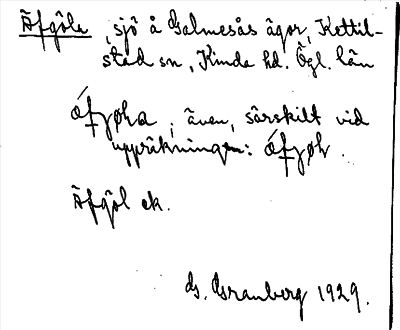 Äfgöla, sjö å Galmesås ägor, Kettil-
stad sn, Kinda hd. Ögl. län
även, särskilt vid
uppräkningen:
Äfgöl ek.
G. Granberg 1929.